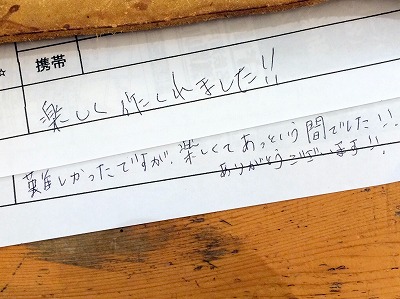 携帯
楽しく作くれました!!
難しかったですが、楽しくてあっという間でした!!
ありがとうございます!!